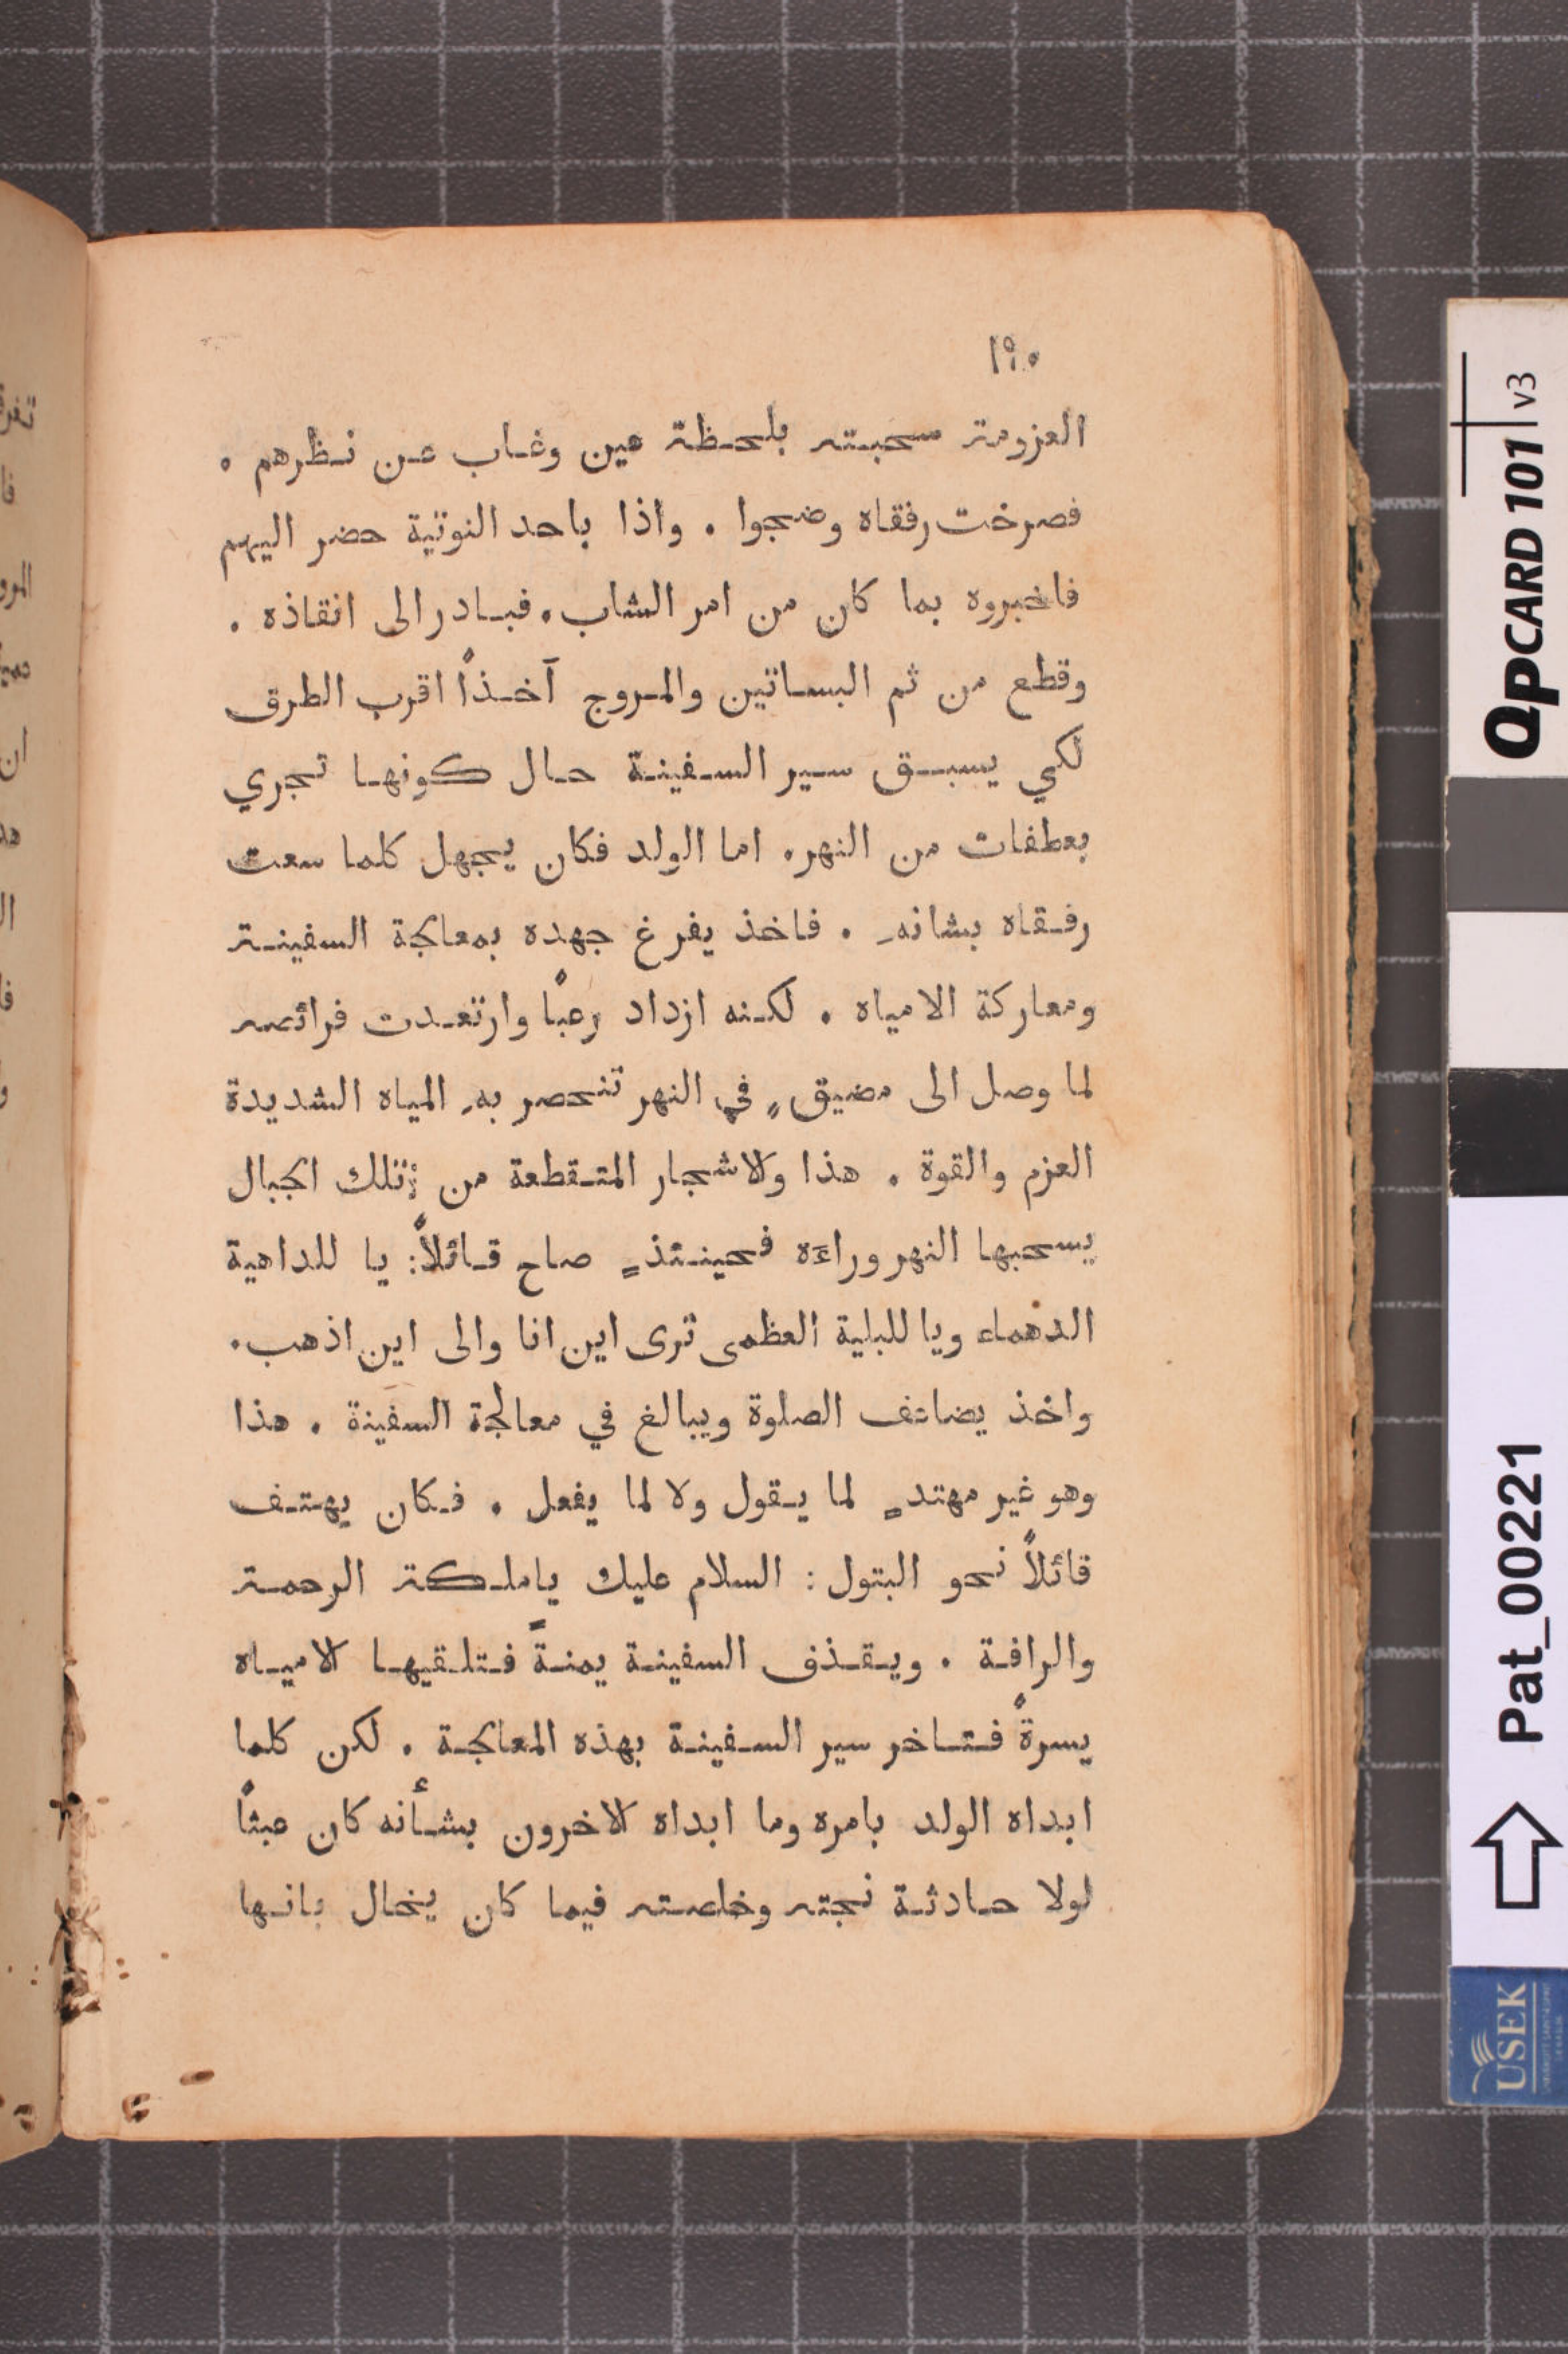 ١٩٠
العزومة سحبته بلحظة عين وغاب عن نظرهم .
فصرخت رفقاه وضجوا . واذا باحد النوتية حضر اليهم
فاخبروه بما كان من امر الشاب . فبادر الى انقاذه .
وقطع من ثم البساتين والمروج آخذاً اقرب الطرق
لكي يسبق سير السفينة حال كونها تجري
بعطفات من النهر . اما الولد فكان يجهل كلما سعت
رفقاه بشانهِ . فاخذ يفرغ جهده بمعالجة السفينة
ومعاركة الامياه . لكنه ازداد رعبًا وارتعدت فرائصه
لما وصل الى مضيقٍ في النهر تنحصر بهِ المياه الشديدة
العزم والقوة . هذا ولاشجار المتقطعة من تلك الجبال
يسحبها النهر وراءه فحينئذٍ صاح قائلاً: يا للداهية
الدهماء ويا للبلية العظمى ترى اين انا والى اين اذهب .
واخذ يضاعف الصلوة ويبالغ في معالجة السفينة . هذا
وهو غير مهتدٍ لما يقول ولا لما يفعل . فكان يهتف
قائلاً نحو البتول : السلام عليك ياملكة الرحمة
والرافة . ويقذف السفينة يمنةً فتلقيها الامياه
يسرةً فتاخر سير السفينة بهذه المعالجة . لكن كلما
ابداه الولد بامره وما ابداه الاخرون بشأنه كان عبثًا
لولا حادثة نجته وخلصته فيما كان يخال بانها
QPCARD 101 v3
Pat_00221
USEK